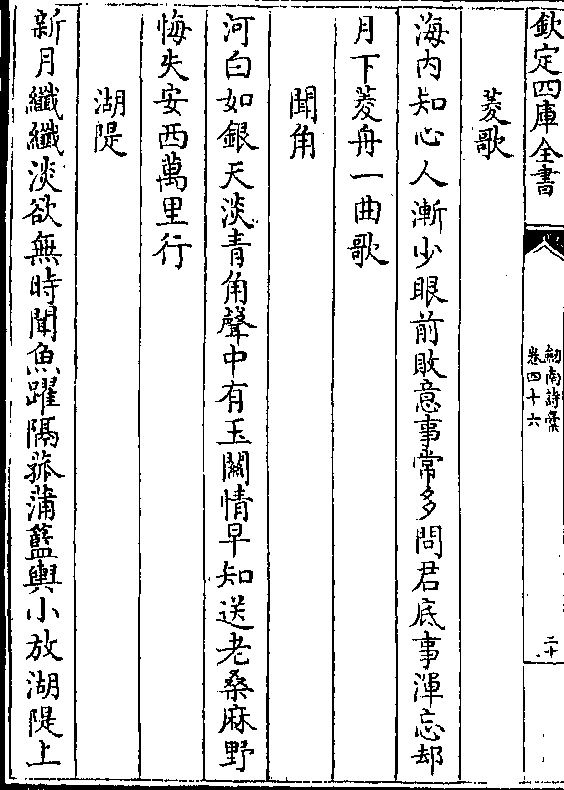 欽定四庫全書
劒南詩稾
卷四十六
二十
菱歌
海内知心人漸少眼前敗意事常多問君底事渾忘却
月下菱舟一曲歌
聞角
河白如銀天淡青角聲中有玉關情早知送老桑麻野
悔失安西萬里行
湖隄
新月纖纖淡欲無時聞魚躍隔菰蒲籃輿小放湖隄上